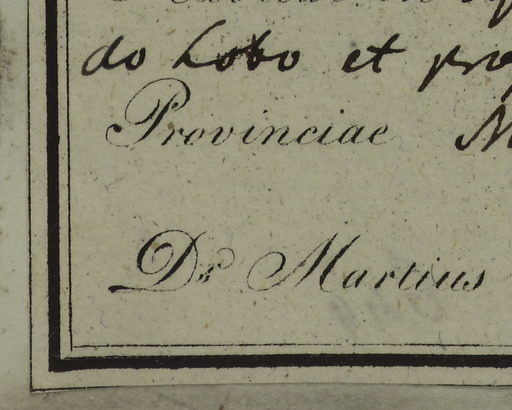 do Lobo et pro
Provinciae
Dr Martius